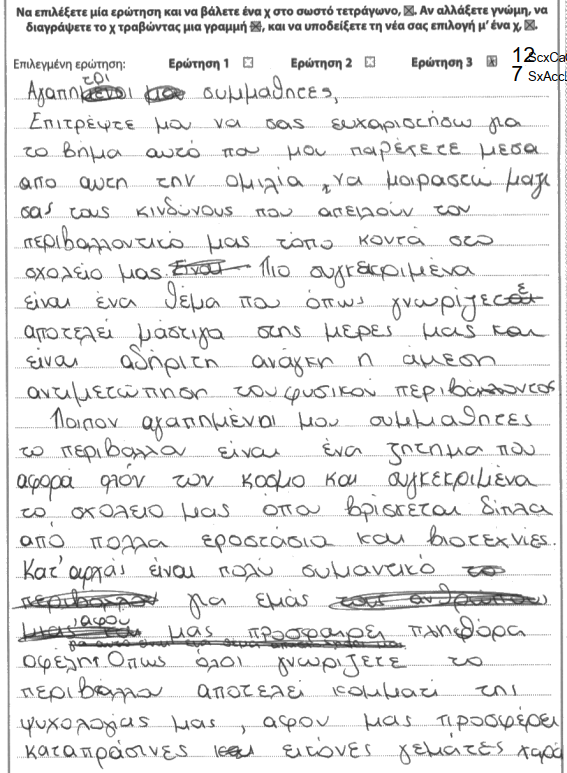 Να επιλέξετε μία ερώτηση και να βάλετε ένα χ στο σωστό τετράγωνο, ☒. Αν αλλάξετε γνώμη, να
διαγράψετε το χ τραβώντας μια γραμμή ☒, και να υποδείξετε τη νέα σας επιλογή μ' ένα χ, ☒.
Επιλεγμένη ερώτηση: Ερώτηση 1 ☒ Ερώτηση 2 ☒ Ερώτηση 3 ☒
12 ScxCa
7 SxAcc
Αγαπητοι συμμαθητες,
Επιτρέψτε μου να σας ευχαριστήσω για
το βήμα αυτό που μου παρέχετε μεσα
απο αυτη την ομιλία, να μοιραστώ μαζι
σας τους κινδύνους που απειλούν τον
περιβαλλοντικό μας τόπο κοντά στο
σχολείο μας. Πιο συγκεκριμένα
είναι ένα θέμα που όπως γνωρίζετε
αποτελεί μάστιγα στης μερες μας και
είναι αδήριτη ανάγκη η άμεση
αντιμετώπηση του φυσικού περιβάλλοντος
Λοιπον αγαπημένοι μου συμμαθητες
το περιβαλλον είναι ένα ζήτημα που
αφορά όλον τον κόσμο και συγκεκριμένα
το σχολείο μας όπου βρίσκεται δίπλα
από πολλα εροστάσια και βιοτεχνίες.
Κατ' αρχάς είναι πολύ συμαντικό το
περιβαλλον για εμάς τους ανθρώπους
αφου μας προσφαιρει πληθόρα
οφέλη. Οπως όλοι γνωρίζετε το
περιβάλλον αποτελεί κομματι της
ψυχολογίας μας, αφου μας προσφέρει
καταπράσινες εικόνες γεμάτες χαρά